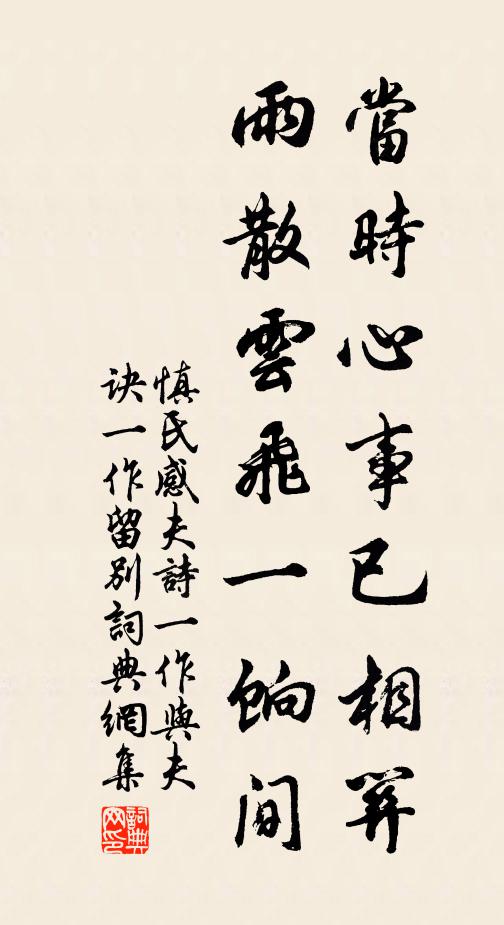 當時心事已相關
雨散雲飛一餉間
慎氏感夫詩一作與夫
訣一作留別詞典網集
詞典
网印